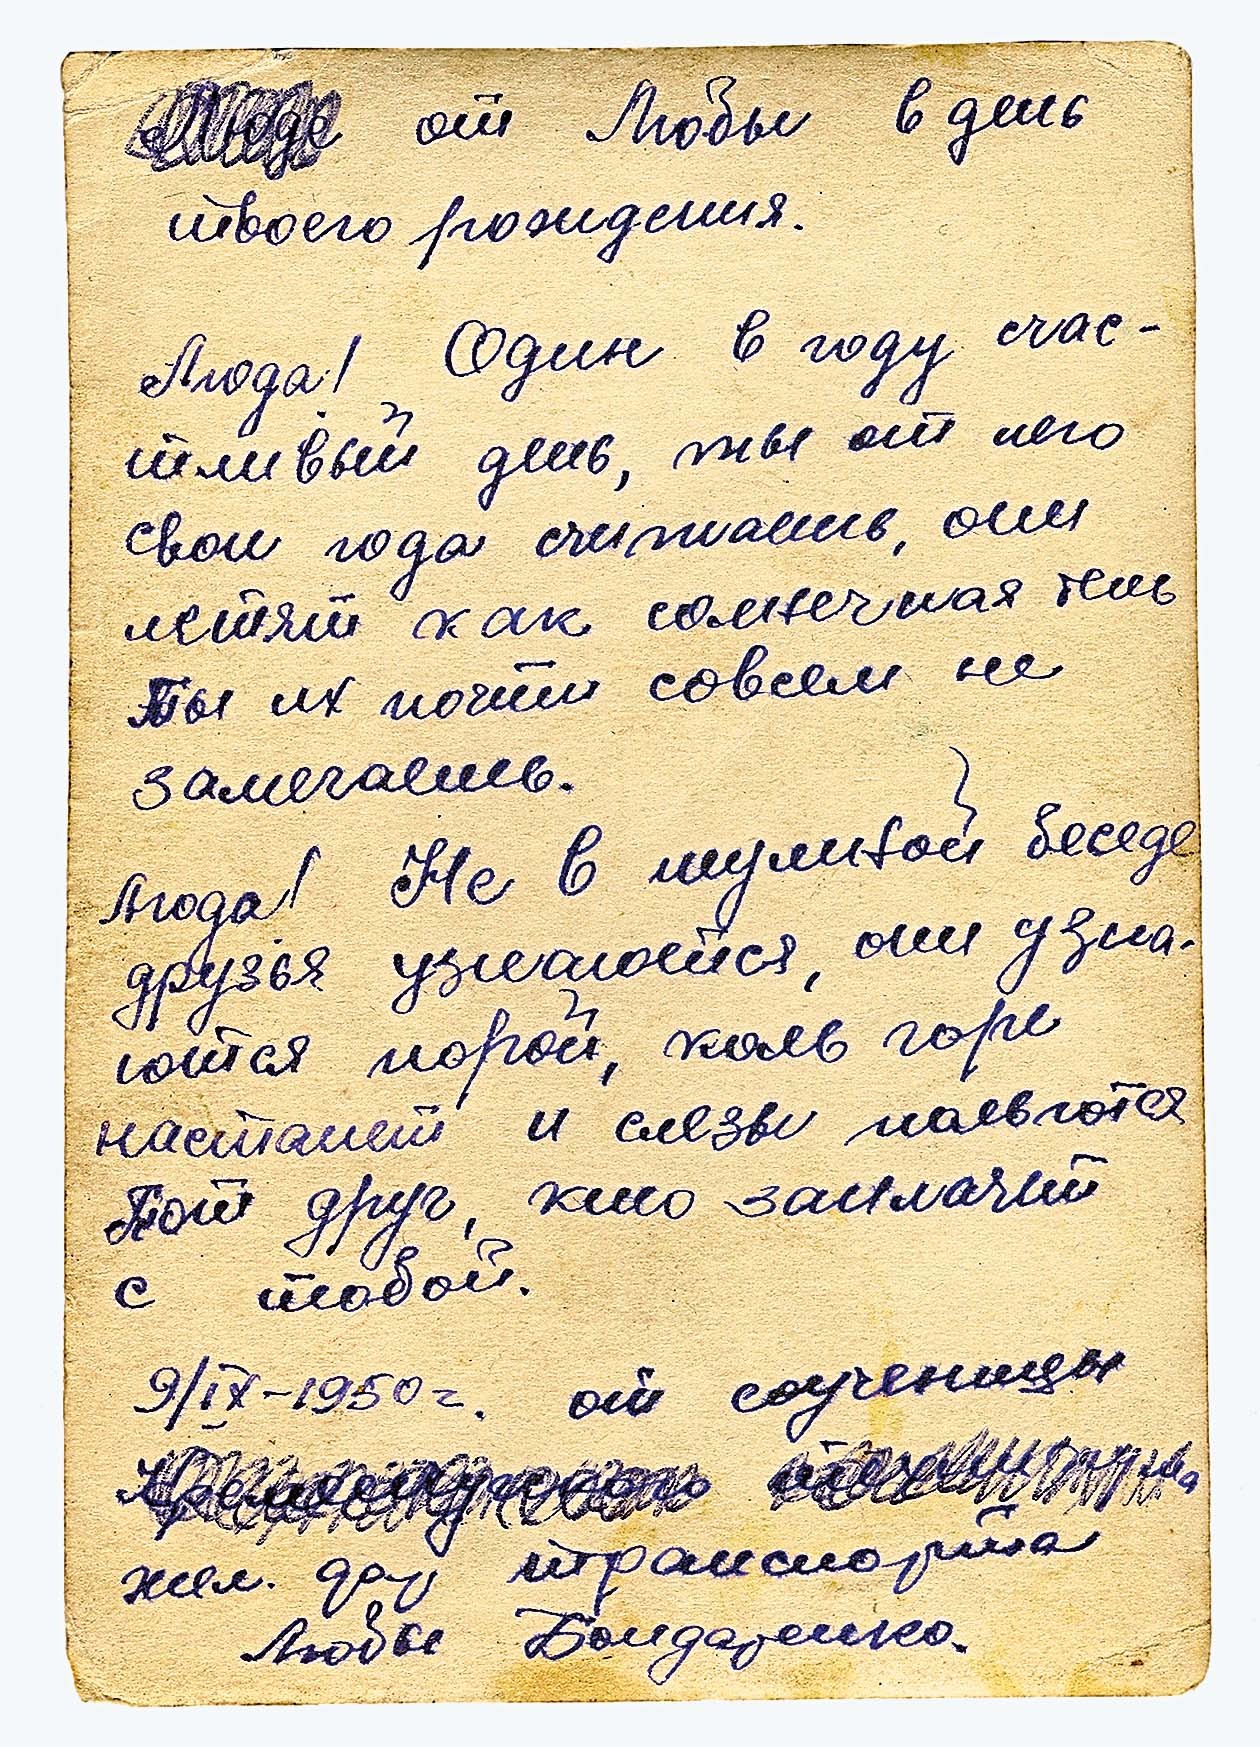 Люде от Любы в день
твоего рождения.
Люда! Один в году счас-
тливый день, ты от него
свои года считаешь, они
летят как солнечная тень
Ты их почти совсем не
замечаешь.
Люда! Не в шумной беседе
друзья узнаются, они узна-
ются порой, коль горе
настанет и слезы польются
Тот друг, кто заплачит
с тобой.
9/IX-1950 г. от соученицы
жел. дор транспорта
Любы Бондаренко.